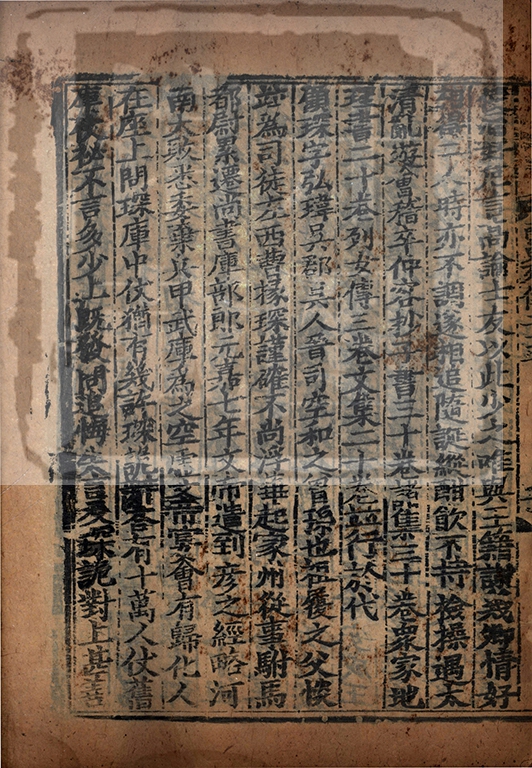 言高論士友以此少之唯與王籍謝幾卿情好
相得二人時亦不調遂相追隨誕縱酣飲不持檢操遇太
清亂遊會稽卒仲容抄子書三十卷諸集三十卷衆家地
理書二十卷列女傳三卷文集二十卷並行於代
顧琛字弘瑋吳郡吳人晉司空和之曾孫也祖履之父惔
並為司徒左西曹掾琛謹確不尚浮華起家州從事駙馬
都尉累遷尚書庫部郎元嘉七年文帝遣到彦之經略河
南大敗悉委棄兵甲武庫為之空虛文帝宴會有歸化人
在座上問琛庫中仗猶有幾許琛詭辭答有十萬人仗舊
庫仗秘不言多少上既發問追悔失言及琛詭對上甚善